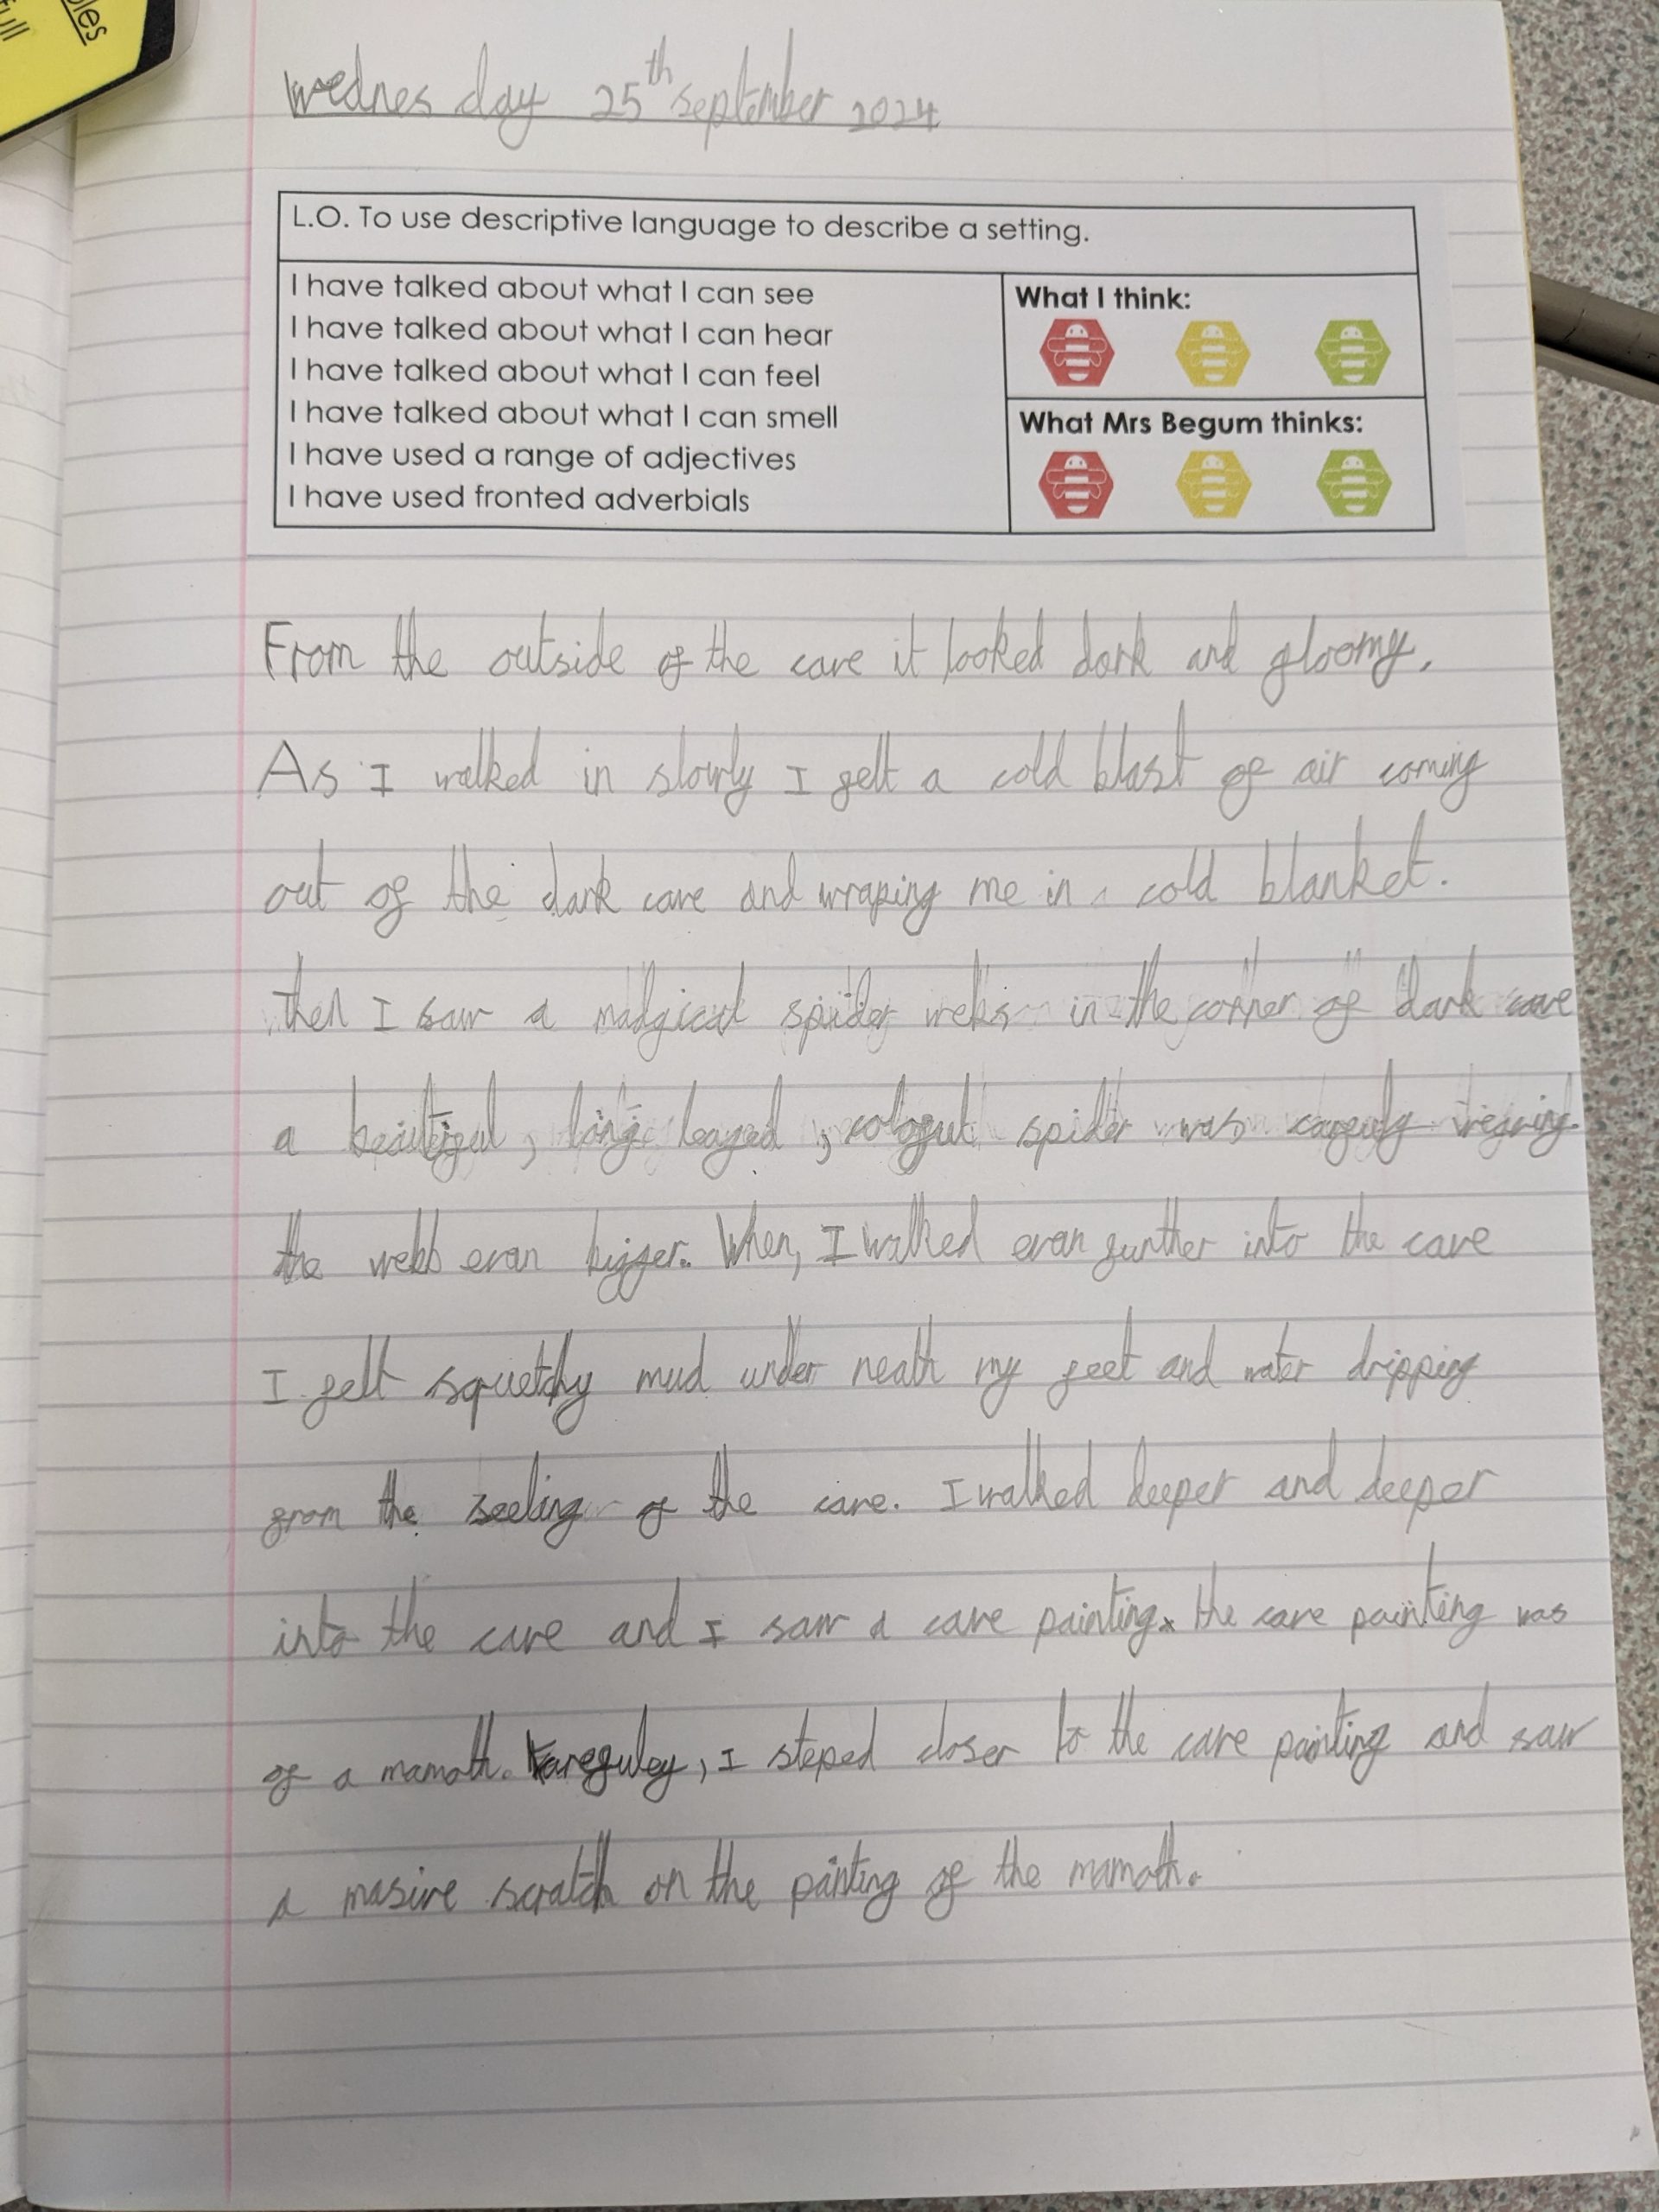 ples
full
Wednesday 25th september 2024
L.O. To use descriptive language to describe a setting.
I have talked about what I can see
I have talked about what I can hear
I have talked about what I can feel
I have talked about what I can smell
I have used a range of adjectives
I have used fronted adverbials
What I think:
What Mrs Begum thinks:
From the outside of the cave it looked dark and gloomy.
As I walked in slowly I felt a cold blast of air coming
out of the dark cave and wraping me in a cold blanket.
then I saw a madgical spider webs in the corner of dark cave
a beautiful, long leaged, spider was
the webb evan bigger. When, I walked evan further into the cave
I felt squetchy mud under neath my feet and water dripping
from the seeling of the cave. I walked deeper and deeper
into the cave and I saw a cave painting. the cave painting was
of a mamoth. Karefuley, I steped closer to the cave painting and saw
a masive scratch on the painting of the mamoth.